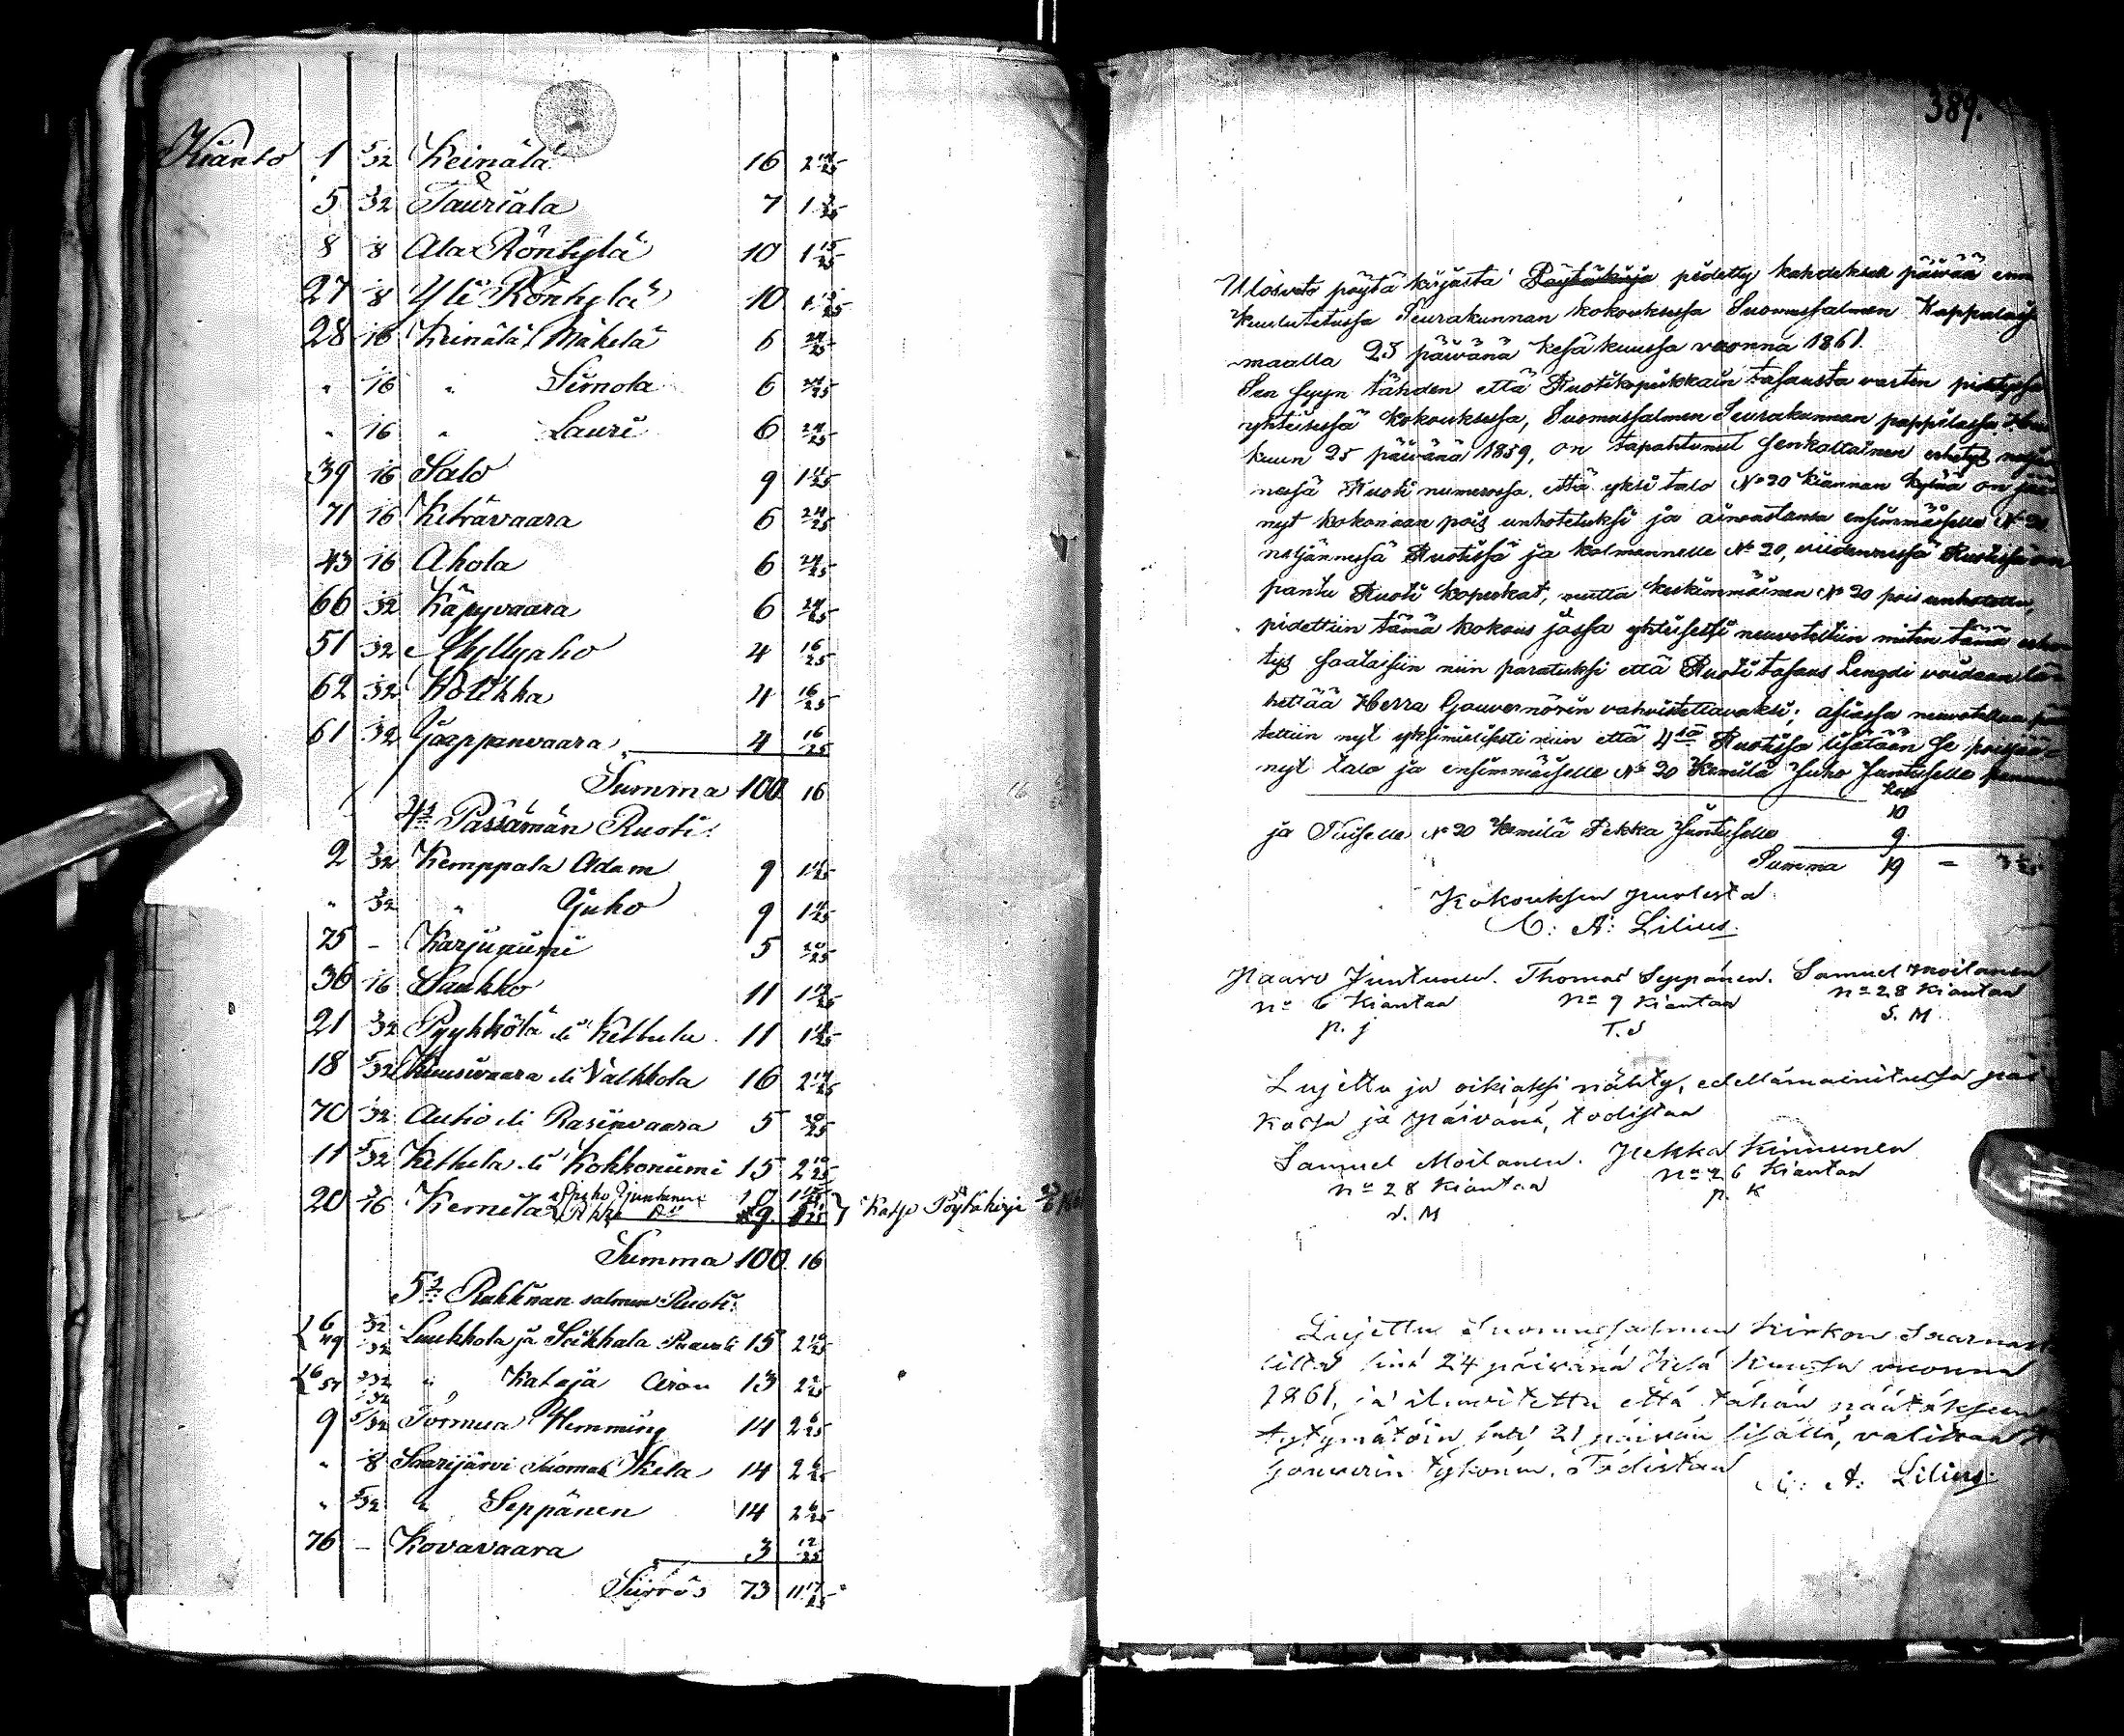 Kianto 1 5/32 Keinälä 16 2 14/25
5 3/32 Tauriala 7 1 3/25
8 1/8 Ala Röntylä 10 1 15/25
27 1/8 Yli Röntylä 10 1 15/25
28 1/16 Keinälä Mäkelä 6 24/25
" 1/16 " Simola 6 24/25
" 1/16 " Lauri 6 24/25
39 1/16 Salo 9 1 11/25
71 1/16 Keträvaara 6 24/25
43 1/16 Ahola 6 24/25
66 1/32 Käpyvaara 6 24/25
51 1/32 Myllyaho 4 16/25
62 1/32 Hotikka 4 16/25
61 1/32 Jaappanvaara 4 16/25
Summa 100 16
4s Pässämän Ruoti.
2 3/32 Kemppala Adam 9 1 11/25
" 3/32 " Juho 9 1 11/25
75 – Karjuniemi 5 20/25
36 1/16 Saukko 11 1 19/25
21 3/32 Pyykkölä eli Kettula 11 1 19/25
18 5/32 Kuusivaara eli Valkkola 16 2 14/25
70 1/32 Autio eli Rasinvaara 5 20/25
11 5/32 Keltula eli Kokkoniemi 15 2 10/25
20 3/16 Kemilä Juho Juntunen 10 1 15/25
Pekka 9 1 11/25 Katso Pöytäkirja
Summa 100 16
5s Ruhtinan salmen Ruoti.
6 49 3/32 1/32 Luukkola ja Seikkala Paavali 15 2 10/25
6 57 3/32 1/32 " Kataja Aron 13 2 2/25
9 5/32 Tormua Hemming 14 2 6/25
" 1/8 Saarijärvi Tuomas Kela 14 2 6/25
" 5/32 " Seppänen 14 2 6/25
76 – Kovavaara 3 12/25
Siirros 73 11 17/25
389.
Ulosveto pöytäkirjasta Pöytäkirja pidetty kahdeksan päivää enn
kuulutetussa Seurakunnan kokouksessa Suomussalmen Kappalais
maalla 25 päivänä kesäkuussa vuonna 1861.
Sen syyn tähden että Ruotikopeikkain tasausta varten pidetyssä
yhteisessä kokouksessa, Suomussalmen Seurakunnan pappilassa
kuun 25 päivänä 1859, on tapahtunut senkaltainen erhetys neljän
nessä Ruoti numerossa, että yksi talo No 20 Kiannan kylää on jää
nyt kokonaan pois unhotetuksi ja ainoastansa ensimmäiselle No 20
neljännessä Ruotissa ja kolmannelle No 20, viidennessä Ruotissa on
pantu Ruoti kopeekat, mutta keskimmäinen No 20 pois unhotettu,
pidettiin tämä kokous jossa yhteisesti neuvoteltiin miten tämä erhe
tys saataisiin niin paratuksi että Ruoti tasaus Lengdi voidaan lä
hettää Herra Gouvernörin vahvistettavaksi; asiassa neuvoteltua pää
tettiin nyt yksimielisesti niin että 4sä Ruotissa lisätään se poisjää
nyt talo ja ensimmäiselle No 20 Kemilä Juho Juntuselle pannaan
kop
10
ja Toiselle No 20 Kemilä Pekka Juntuselle 9
Summa 19 = 3 1/25
Kokouksen puolesta
C: A: Lilius.
Paavo Juntunen. Thomas Seppänen. Samuel Moilanen
no 6 Kiantaa no 9 Kiantaa no 28 Kiantaa
p. j T. S S. M
Lujettu ja oikiaksi nähty, edellämainitussa pai
kassa ja päivänä, todistaa
Samuel Moilanen. Pekka Kinnunen
no 28 Kiantaa no 26 Kiantaa
S. M p. K
Lujettu Suomussalmen Kirkon Saarnas
sinä 24 päivänä Kesä Kuussa vuonna
1861, ja ilmoitettu että tähän päätökseen
tytymätöin saa 21 päivän sisällä, valittaa
Gouverin tykönä. Todistaa C: A: Lilius.